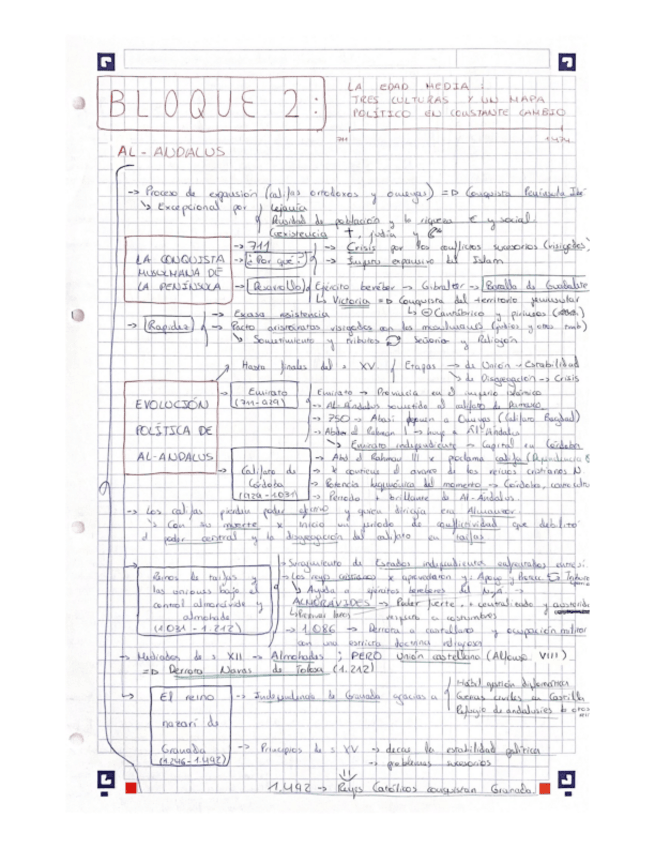 BLOQUE 2:
LA EDAD MEDIA:
TRES CULTURAS Y UN MAPA
POLÍTICO EN CONSTANTE CAMBIO
711
1474
AL-ANDALUS
-> Proceso de expansión (califas ortodoxos y omeyas) => Conquista Península Ibé
↳ Excepcional por
lejanía
Densidad de población y la riqueza € y social
Coexistencia
LA CONQUISTA
MUSULMANA DE
LA PENÍNSULA
-> 711
-> ¿Por qué?
-> Crisis por los conflictos sucesorios (visigodos)
-> Imperio expansivo del Islam
-> Desarrollo
Ejército bereber -> Gibraltar -> Batalla de Guadalete
↳ Victoria => Conquista del territorio peninsular
↳ Cantábrico y pirineos
-> Rapidez
-> Escasa resistencia
-> Pacto aristócratas visigodos con los musulmanes
↳ Sometimiento y tributos señorío y Religión
EVOLUCIÓN
POLÍTICA DE
AL-ANDALUS
Hasta finales del s XV
Etapas -> de Unión - Estabilidad
↳ de Disgregación -> Crisis
-> Emirato
(711-929)
Emirato -> Provincia en el imperio islámico
-> Al-Ándalus sometido al califato de Damasco
-> 750 -> (Califato Bagdad)
-> Abderramán I -> huye a Al-Ándalus
↳ Emirato independiente -> Capital en Córdoba
-> Califato de
Córdoba
(929-1031)
-> Abd el Rahman III x proclama califa
-> x contener el avance de los reinos cristianos N
-> Potencia hegemónica del momento -> Córdoba,
-> Periodo + brillante de Al-Andalus.
-> Los califas pierden poder efectivo y quien dirigía era Almanzor
↳ Con su muerte x inició un periodo de conflictividad que debilitó
el poder central y la disgregación del califato en taifas
Reinos de taifas y
los uniones bajo el
control almorávide y
almohade
(1.031 - 1.212)
-> Surgimiento de Estados independientes enfrentados
-> Los reyes cristianos x aprovecharon y: Apoyo y
↳ Ayuda a ejércitos bereberes del
ALMORÁVIDES -> Poder fuerte, + centralizado y
respecto a costumbres
-> 1.086 -> Derrota a castellano y ocupación militar
con una estricta doctrina religiosa
-> Mediados de s XII -> Almohades; PERO unión castellano (Alfonso VIII)
=> Derrota Navas de Tolosa (1.212)
El reino
nazarí de
Granada
(1.246-1.492)
-> Independencia de Granada gracias a
Hábil gestión diplomática
Guerras civiles en Castilla
Refugio de andalusíes
-> Principios de s XV
-> decae la estabilidad política
-> problemas sucesorios
1.492 -> Reyes Católicos conquistan Granada.